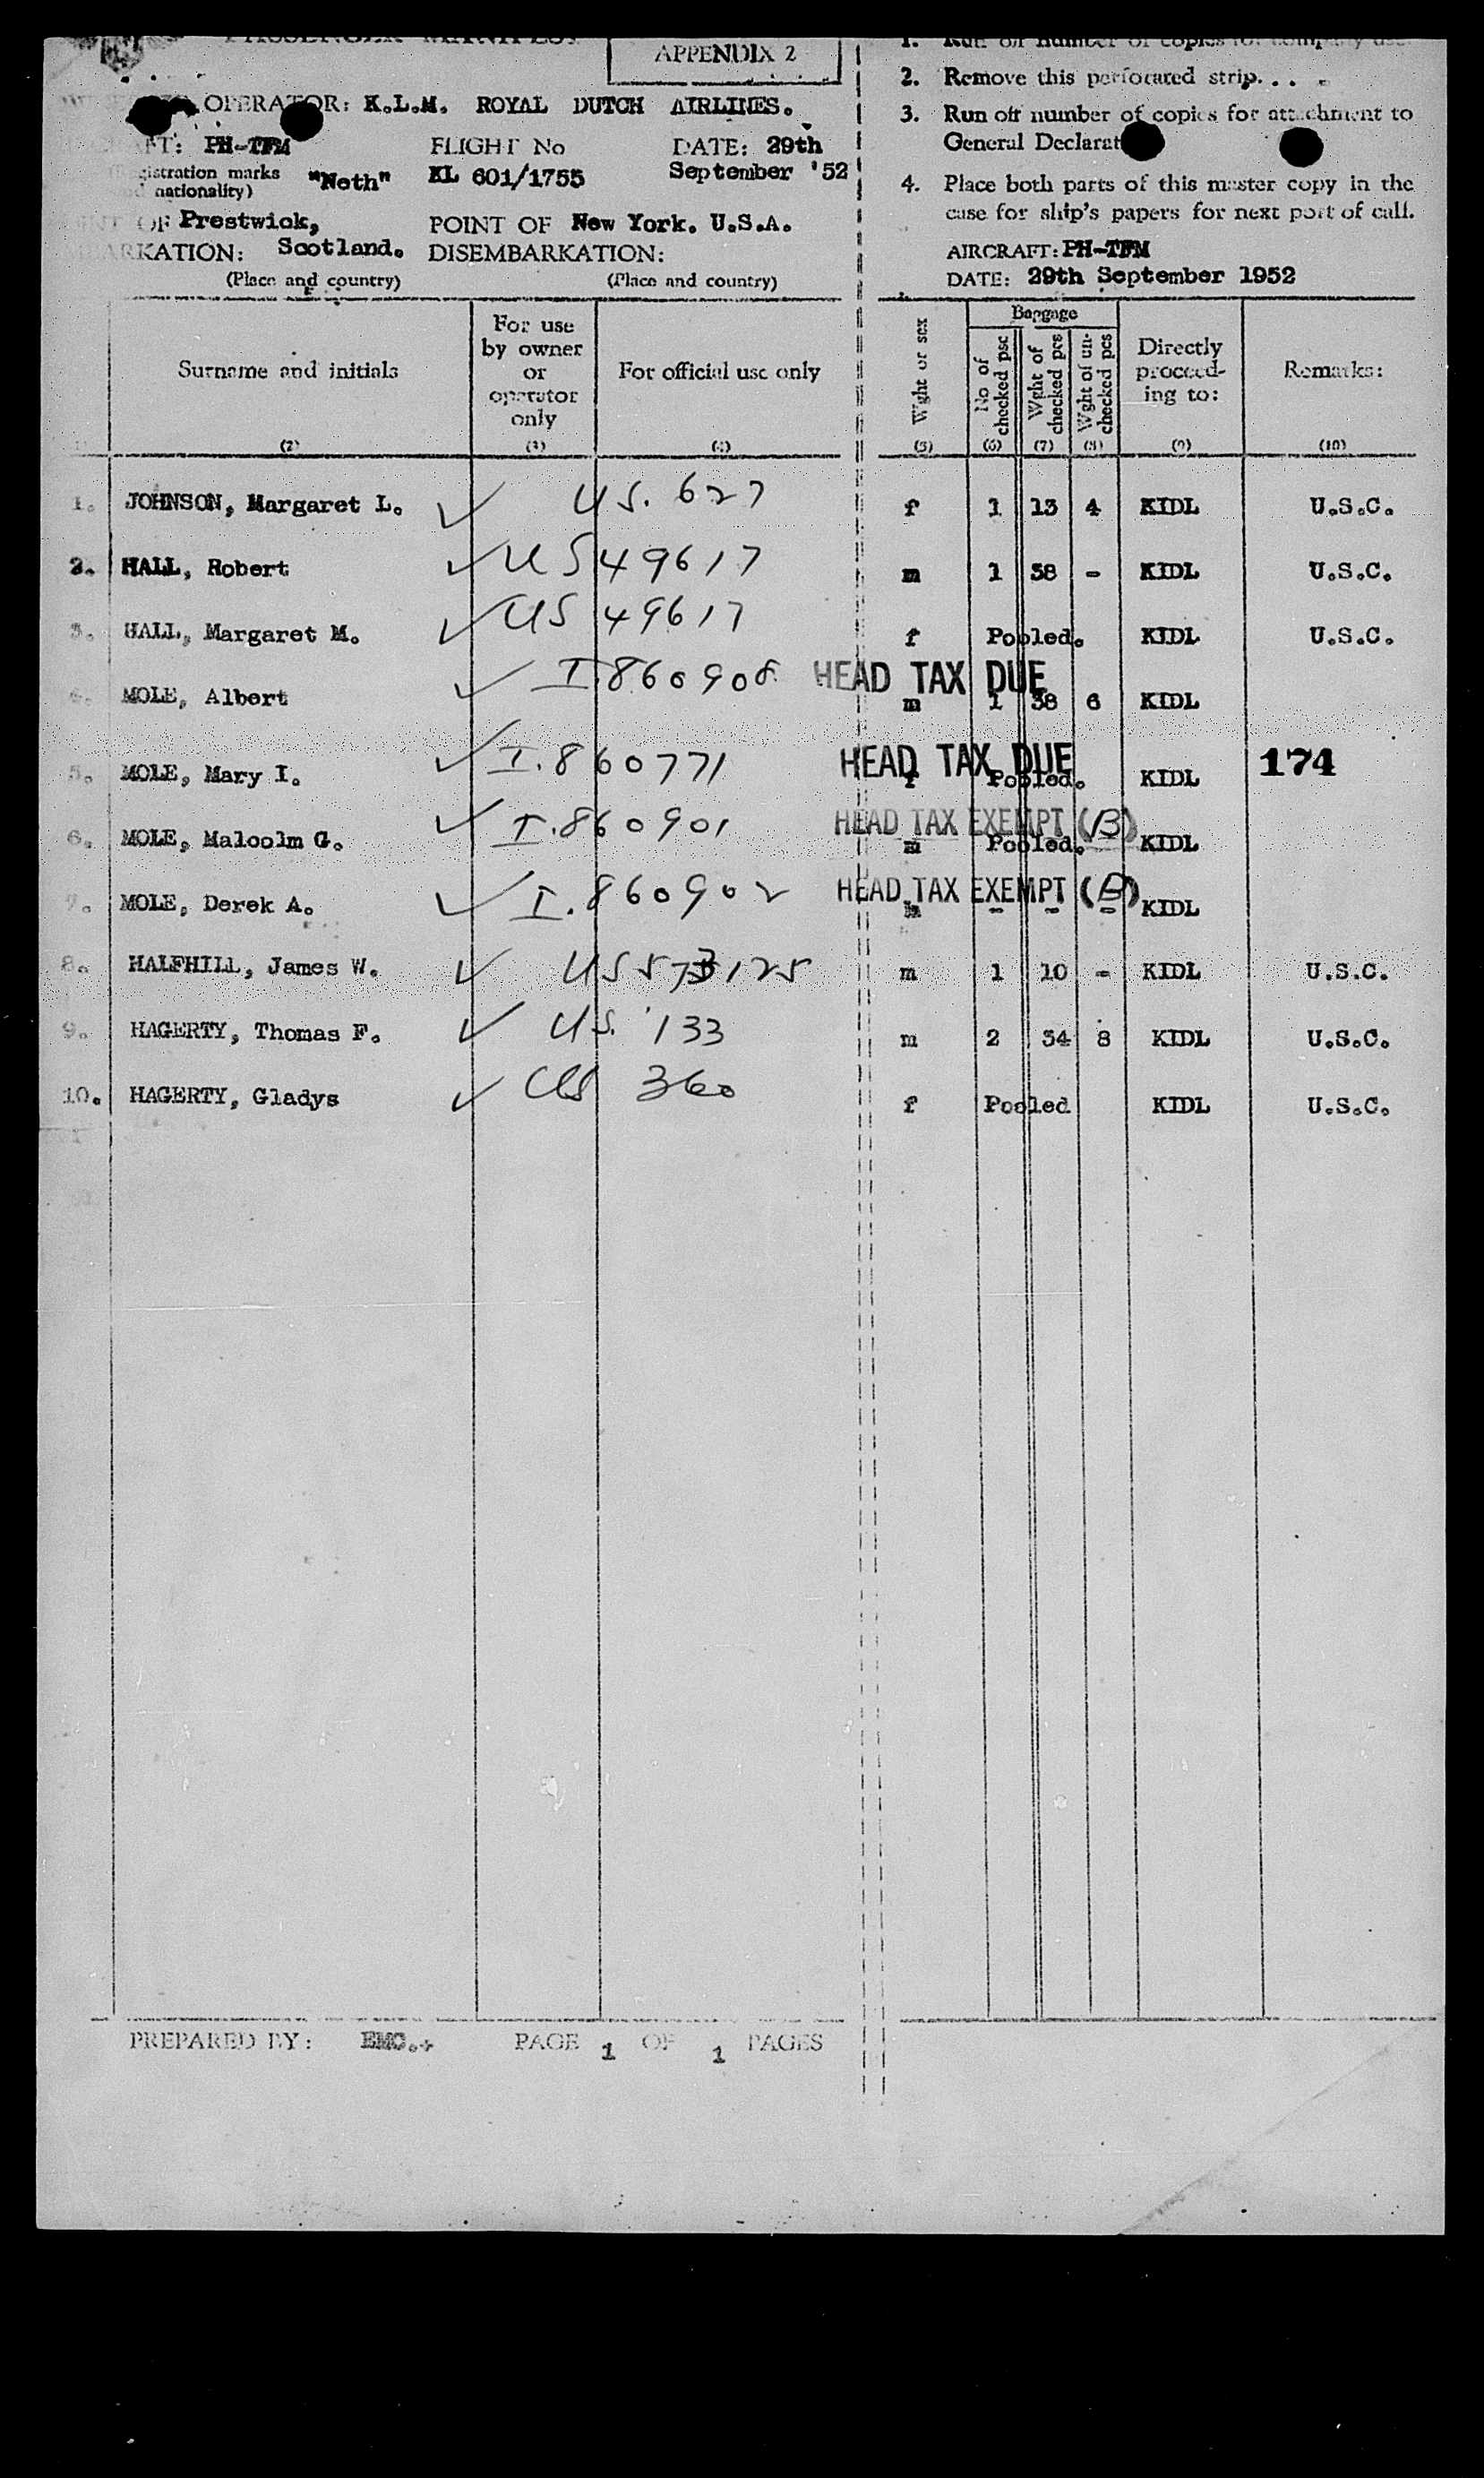 PASSENGER MANIFEST
APPENDIX 2
OPERATOR: K.L.M. ROYAL DUTCH AIRLINES.
PH-TFM FLIGHT No DATE: 29th
marks "Neth" KL 601/1755 September '52
nationality)
OF Prestwick, POINT OF New York. U.S.A.
Scotland. DISEMBARKATION:
(Place and country) (Place and country)
2. Remove this perforated strip.
3. Run off number of copies for attachment to
General
4. Place both parts of this master copy in the
case for ship's papers for next port of call.
AIRCRAFT: PH-TFM
DATE: 29th September 1952
Surname and initials
(2)
For use
by owner
or
operator
only
(3)
For official use only
(4)
Wght or sex
(5)
Baggage
No of
checked psc
(6)
Wght of
checked pcs
(7)
Wght of un-
checked pcs
(8)
Directly
proceed-
ing to:
(9)
Remarks:
(10)
1. JOHNSON, Margaret L. ✓ US. 627 f 1 13 4 KIDL U.S.C.
2. HALL, Robert ✓ US 49617 m 1 38 - KIDL U.S.C.
3. HALL, Margaret M. ✓ US 49617 f Pooled. KIDL U.S.C.
4. MOLE, Albert ✓ I.860908 HEAD TAX DUE m 1 38 6 KIDL
5. MOLE, Mary I. ✓ I.860771 HEAD TAX DUE f Pooled. KIDL 174
6. MOLE, Malcolm G. ✓ I.860901 HEAD TAX EXEMPT (B) m Pooled. KIDL
7. MOLE, Derek A. ✓ I.860902 HEAD TAX EXEMPT (B) - - - KIDL
8. HALFHILL, James W. ✓ US 573125 m 1 10 - KIDL U.S.C.
9. HAGERTY, Thomas F. ✓ US. 133 m 2 34 8 KIDL U.S.C.
10. HAGERTY, Gladys ✓ US 360 f Pooled KIDL U.S.C.
PREPARED BY: EMC. PAGE 1 OF 1 PAGES